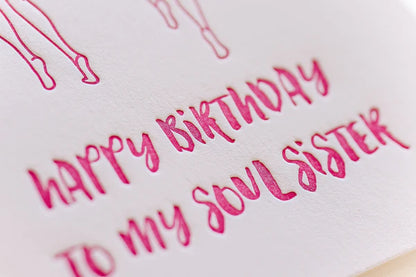 HAPPY BIRTHDAY
TO MY SOUL SISTER